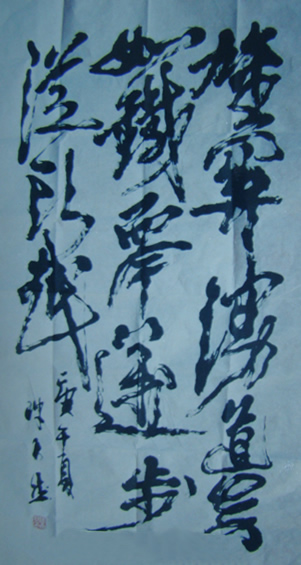 雄關漫道真
如鐵而今邁步
從头越
午夏